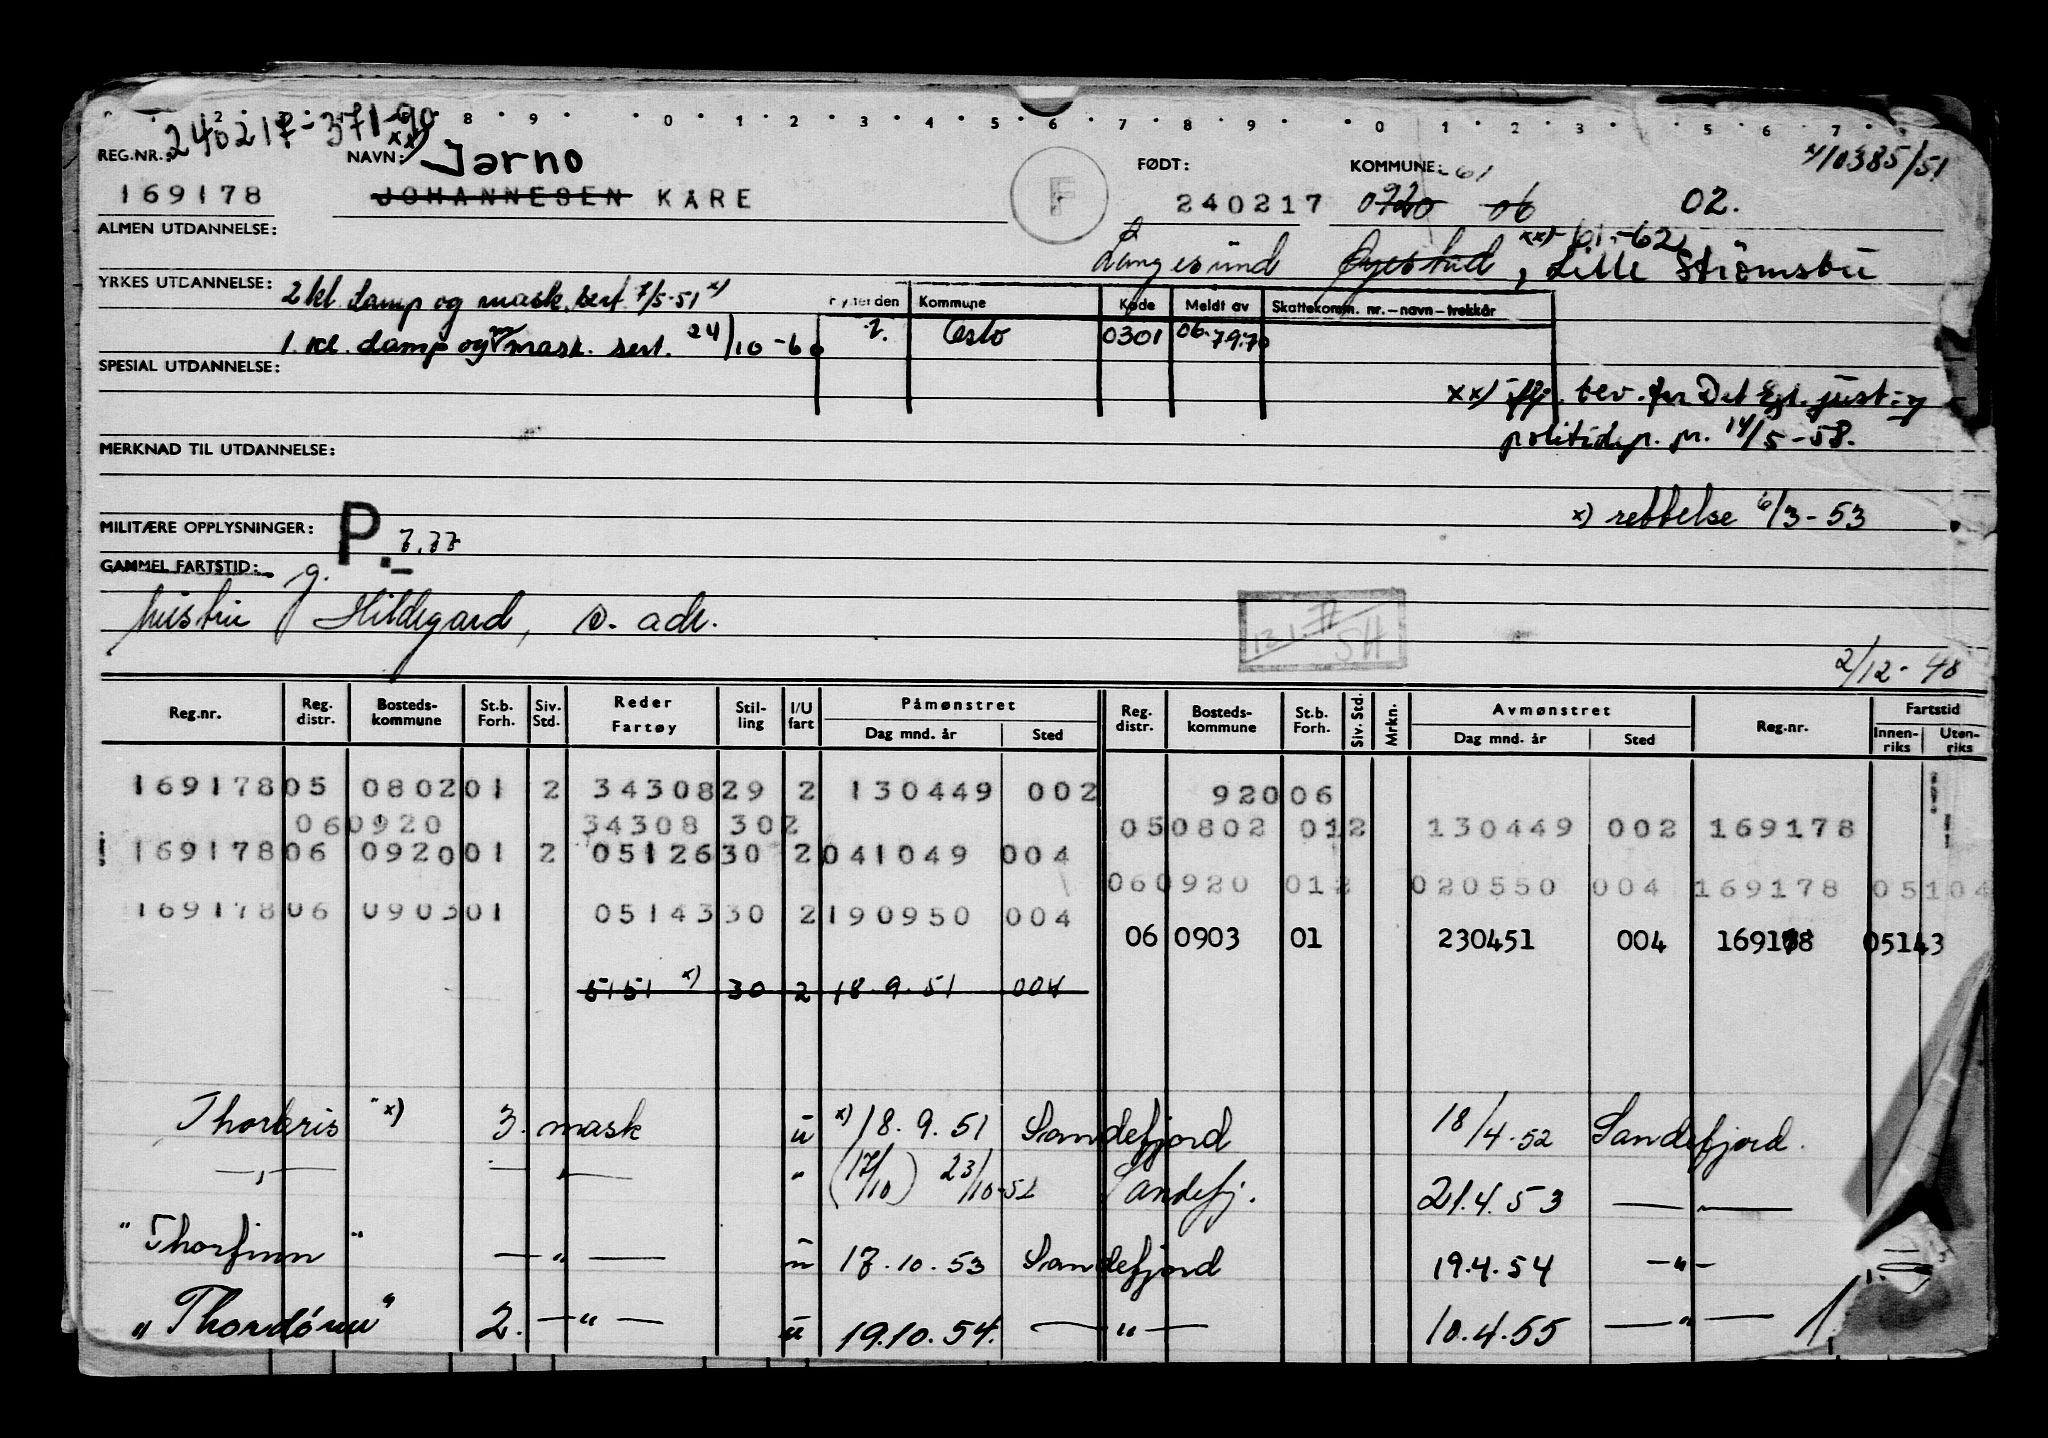 240217-371-90
8 9 0 1 2 3 4 5 6 7 8 9 0 1 2 3 5 6 7
REG.NR.: NAVN: xx) Jarno FØDT: KOMMUNE: -61 x/10385/51
169178 JOHANNESEN KARE F 240217 0920 06 02.
ALMEN UTDANNELSE: xx)-61.-62,
Langesund Øyestad, Lille Strömsbu
YRKES UTDANNELSE: 2 kl damp og mask. sert 7/5-51 x)
Kommune Kode Meldt av Skattekomm. nr.–navn–trekkår
1. kl. damp og mask. sert. 24/10-60 2. Oslo 0301 06.79.70
SPESIAL UTDANNELSE:
xx) iflg. bev. fra Det Kgl. just- og
politidep. pr. 14/5-58.
MERKNAD TIL UTDANNELSE:
x) rettelse 6/3-53
MILITÆRE OPPLYSNINGER: P. 7.77
GAMMEL FARTSTID: g.
hustru Hildegard, s. adr.
12.1.77 SH
2/12-48
Reg.nr. Reg. distr. Bosteds- kommune St.b. Forh. Siv. Std. Reder Fartøy Stil- ling I/U fart Påmønstret Dag mnd. år Sted Reg. distr. Bosteds- kommune St.b. Forh. Siv. Std. Mrkn. Avmønstret Dag mnd. år Sted Reg.nr. Fartstid Innen- riks Uten- riks
169178 05 0802 01 2 34308 29 2 130449 002 920 06
06 0920 34308 30 2 05 0802 01 2 130449 002 169178
169178 06 0920 01 2 05126 30 2 041049 004
06 0920 01 2 020550 004 169178 05104
169178 06 0903 01 05143 30 2 190950 004
06 0903 01 230451 004 169178 05143
5151 x) 30 2 18.9.51 004
Thorbris" x) 3. mask u x) 18.9.51 Sandefjord 18/4.52 Sandefjord.
—"— —"— " (17/10) 23/10-52 Sandefj. 21.4.53 —"—
"Thorfinn" —"— u 17.10.53 Sandefjord 19.4.54 —"—
"Thordönn" 2. —"— u 19.10.54. —"— 10.4.55 —"— 1.